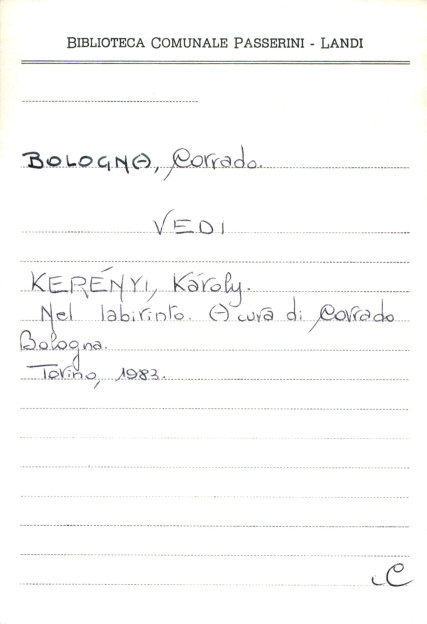 BIBLIOTECA COMUNALE PASSERINI - LANDI
BOLOGNA, Corrado.
VEDI
KERÉNYI, Károly.
Nel labirinto. A cura di Corrado
Bologna.
Torino, 1983.
C